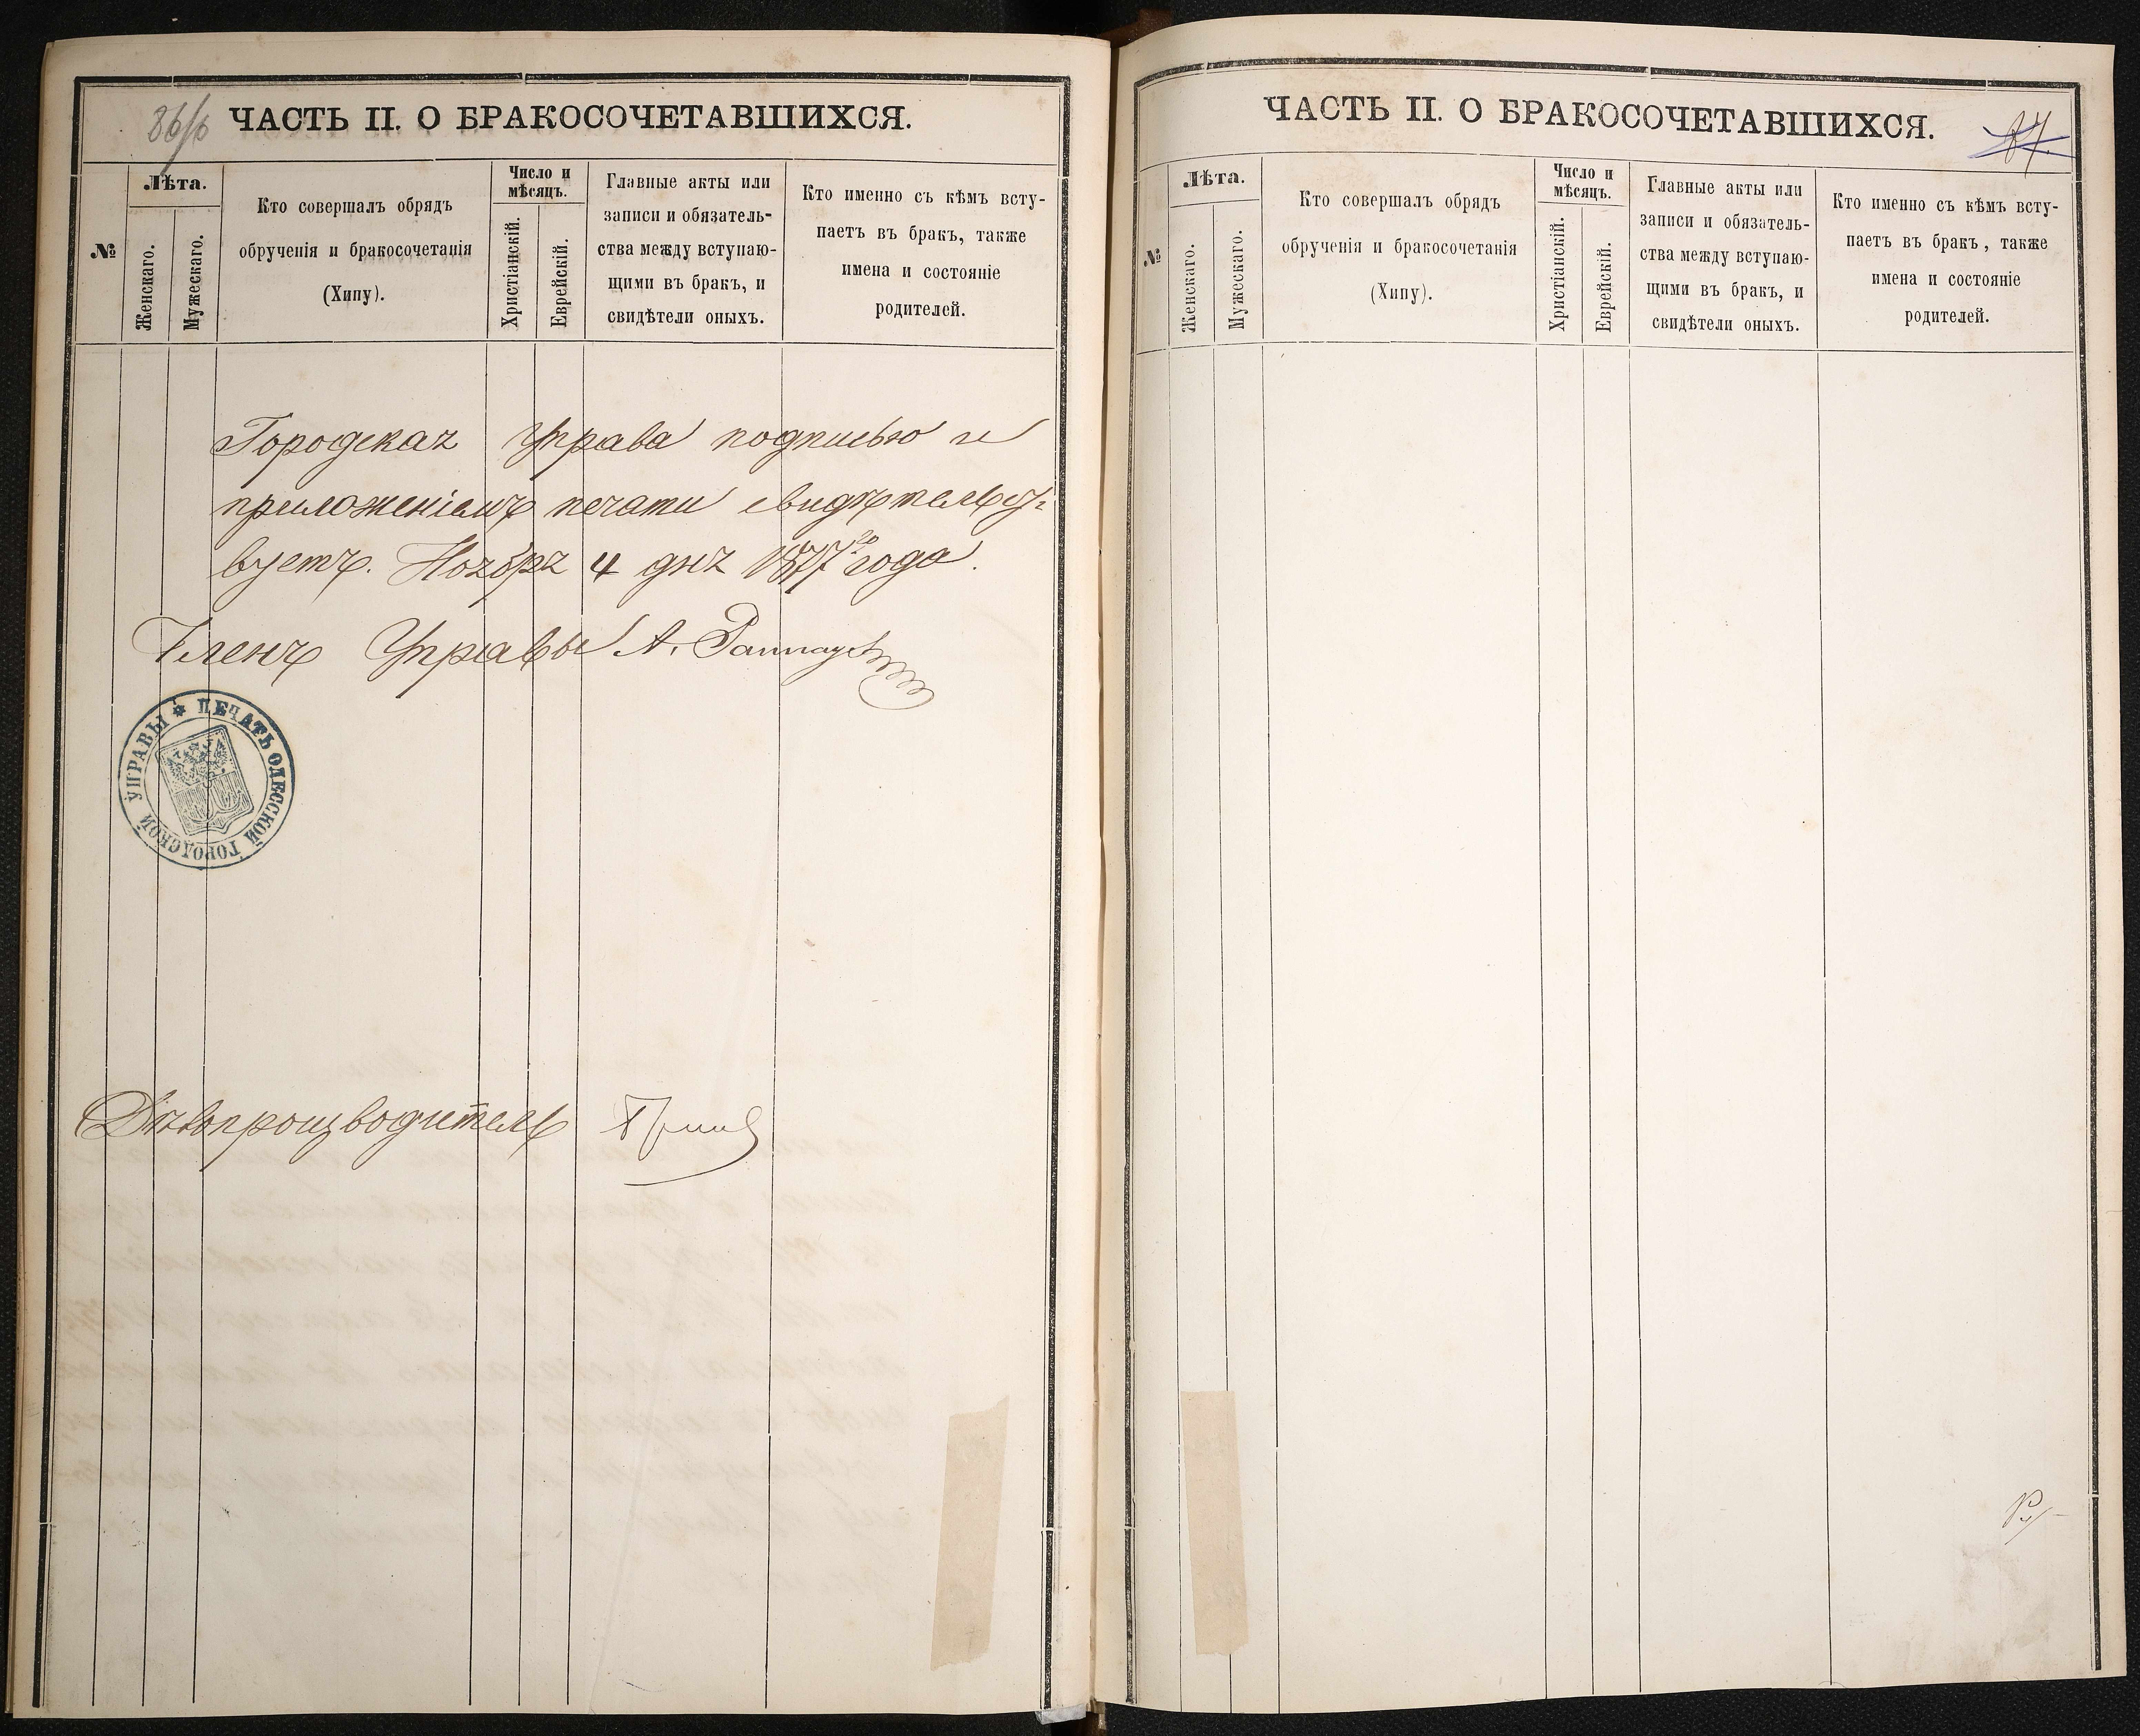 ЧАСТЬ II. О БРАКОСОЧЕТАВШИХСЯ.
№
Лѣта.
Женскаго.
Мужескаго.
Кто совершалъ обрядъ
обрученія и бракосочетанія
(Хипу).
Число и
мѣсяцъ.
Христіанскій.
Еврейскій.
Главные акты или
записи и обязатель-
ства между вступаю-
щими въ бракъ, и
свидѣтели оныхъ.
Кто именно съ кѣмъ всту-
паетъ въ бракъ, также
имена и состояніе
родителей.
Городская Управа подписью и
приложеніемъ печати свидѣтельст-
вуетъ. Ноября 4 дня 1877 года.
Членъ Управы А.
ПЕЧАТЬ ОДЕССКОЙ ГОРОДСКОЙ УПРАВЫ
Дѣлопроизводитель
ЧАСТЬ II. О БРАКОСОЧЕТАВШИХСЯ.
87.
№
Лѣта.
Женскаго.
Мужескаго.
Кто совершалъ обрядъ
обрученія и бракосочетанія
(Хипу).
Число и
мѣсяцъ.
Христіанскій.
Еврейскій.
Главные акты или
записи и обязатель-
ства между вступаю-
щими въ бракъ, и
свидѣтели оныхъ.
Кто именно съ кѣмъ всту-
паетъ въ бракъ, также
имена и состояніе
родителей.